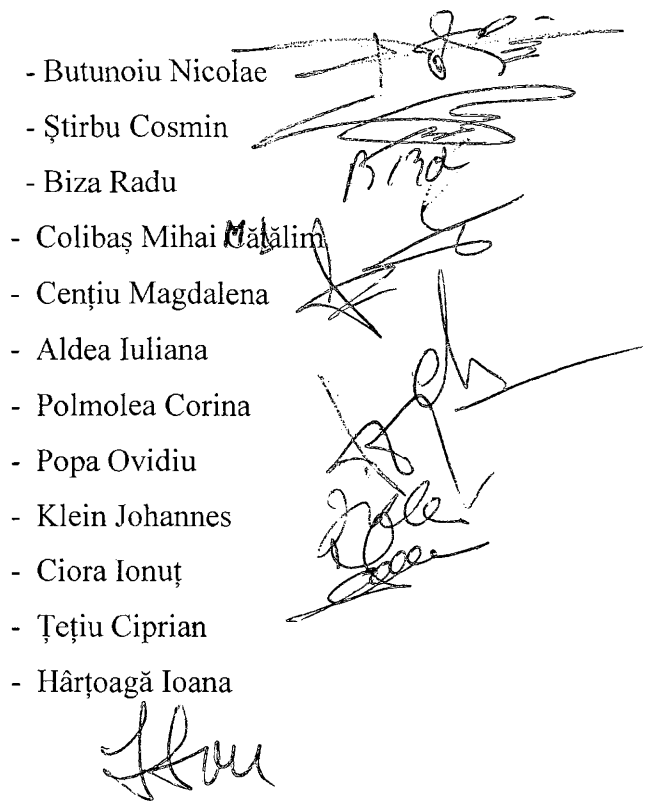 - Butunoiu Nicolae
- Știrbu Cosmin
- Biza Radu
Biza
- Colibaș Mihai Mătălim
- Cențiu Magdalena
- Aldea Iuliana
- Polmolea Corina
- Popa Ovidiu
- Klein Johannes
- Ciora Ionuț
- Țețiu Ciprian
- Hârțoagă Ioana